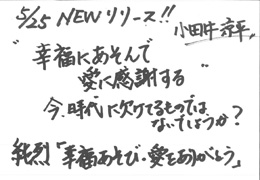 5/25 NEWリリース!!
小田井涼平
"幸福にあそんで
愛に感謝する"
今、時代に欠けてるものでは
ないでしょうか?
純烈「幸福あそび・愛をありがとう」